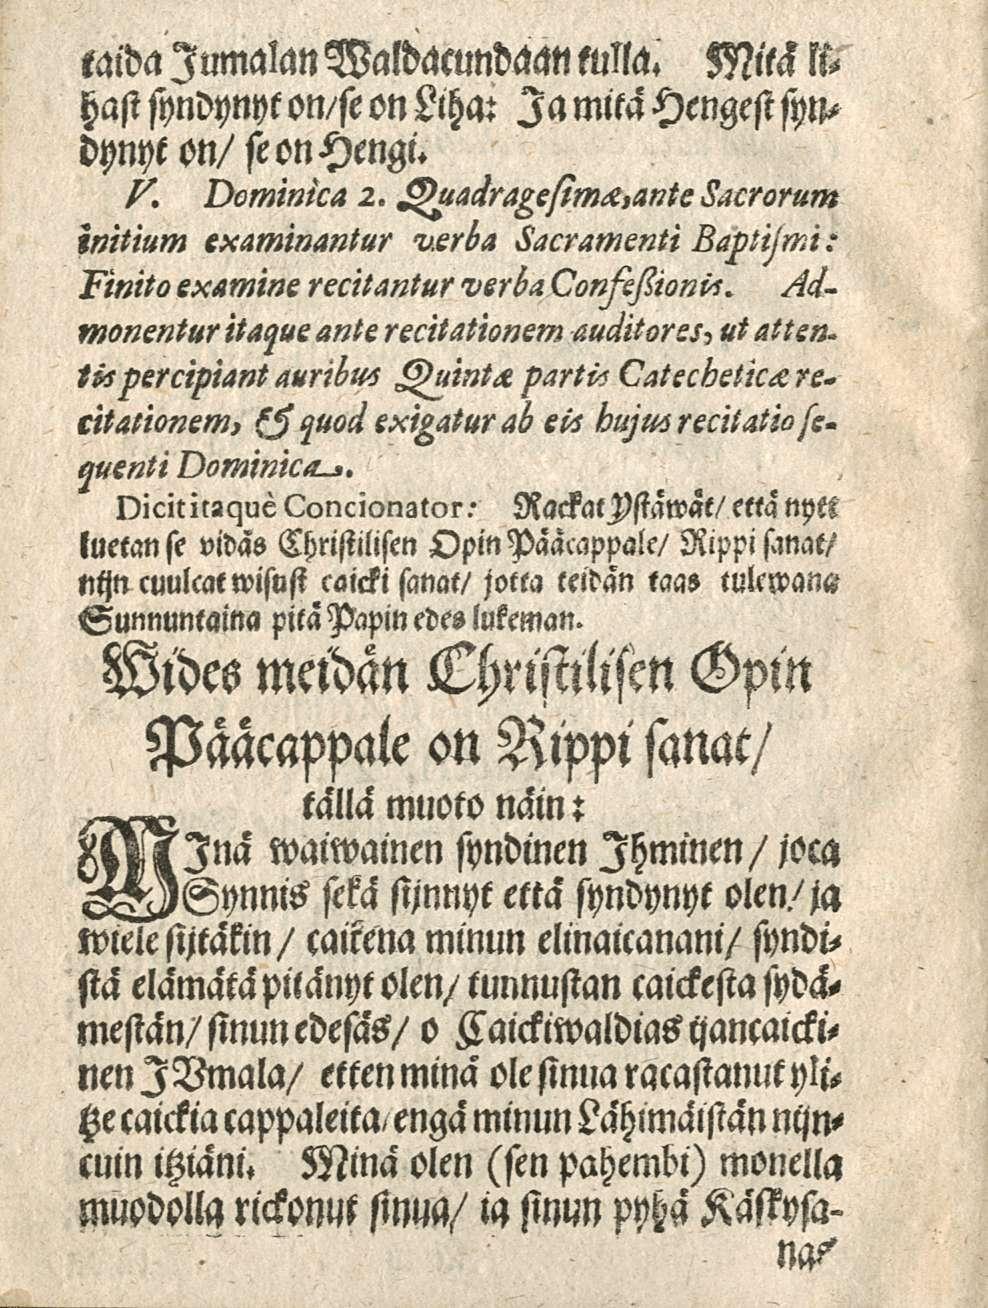 taida Jumalan Waldacundaan tulla. Mitä li-
hast syndynyt on/ se on Liha: Ja mitä Hengest syn-
dynyt on/ se on Hengi.
V. Dominica 2. Quadragesimæ, ante Sacrorum
initium examinantur verba Sacramenti Baptismi:
Finito examine recitantur verba Confeßionis. Ad-
monentur itaque ante recitationem auditores, ut atten-
tis percipiant auribus Quintæ partis Catecheticæ re-
citationem, & quod exigatur ab eis hujus recitatio se-
quenti Dominica.
Dicit itaquè Concionator: Rackat Ystäwät/ että nytt
luetan se vidäs Christilisen Opin Pääcappale/ Rippi sanat/
nijn cuulcat wisust caicki sanat/ jotta teidän taas tulewana
Sunnuntaina pitä Papin edes lukeman.
Wides meidän Christilisen Opin
Pääcappale on Rippi sanat/
tällä muoto näin:
MInä waiwainen syndinen Ihminen/ joca
Synnis sekä sijnnyt että syndynyt olen/ ja
wiele sijtäkin/ caikena minun elinaicanani/ syndi-
stä elämätä pitänyt olen/ tunnustan caickesta sydä-
mestän/ sinun edesäs/ o Caickiwaldias ijancaicki-
nen JUmala/ etten minä ole sinua racastanut yli-
tze caickia cappaleita/ engä minun Lähimäistän nijn-
cuin itziäni. Minä olen (sen pahembi) monella
muodolla rickonut sinua/ ja sinun pyhä Käskysa-
nas